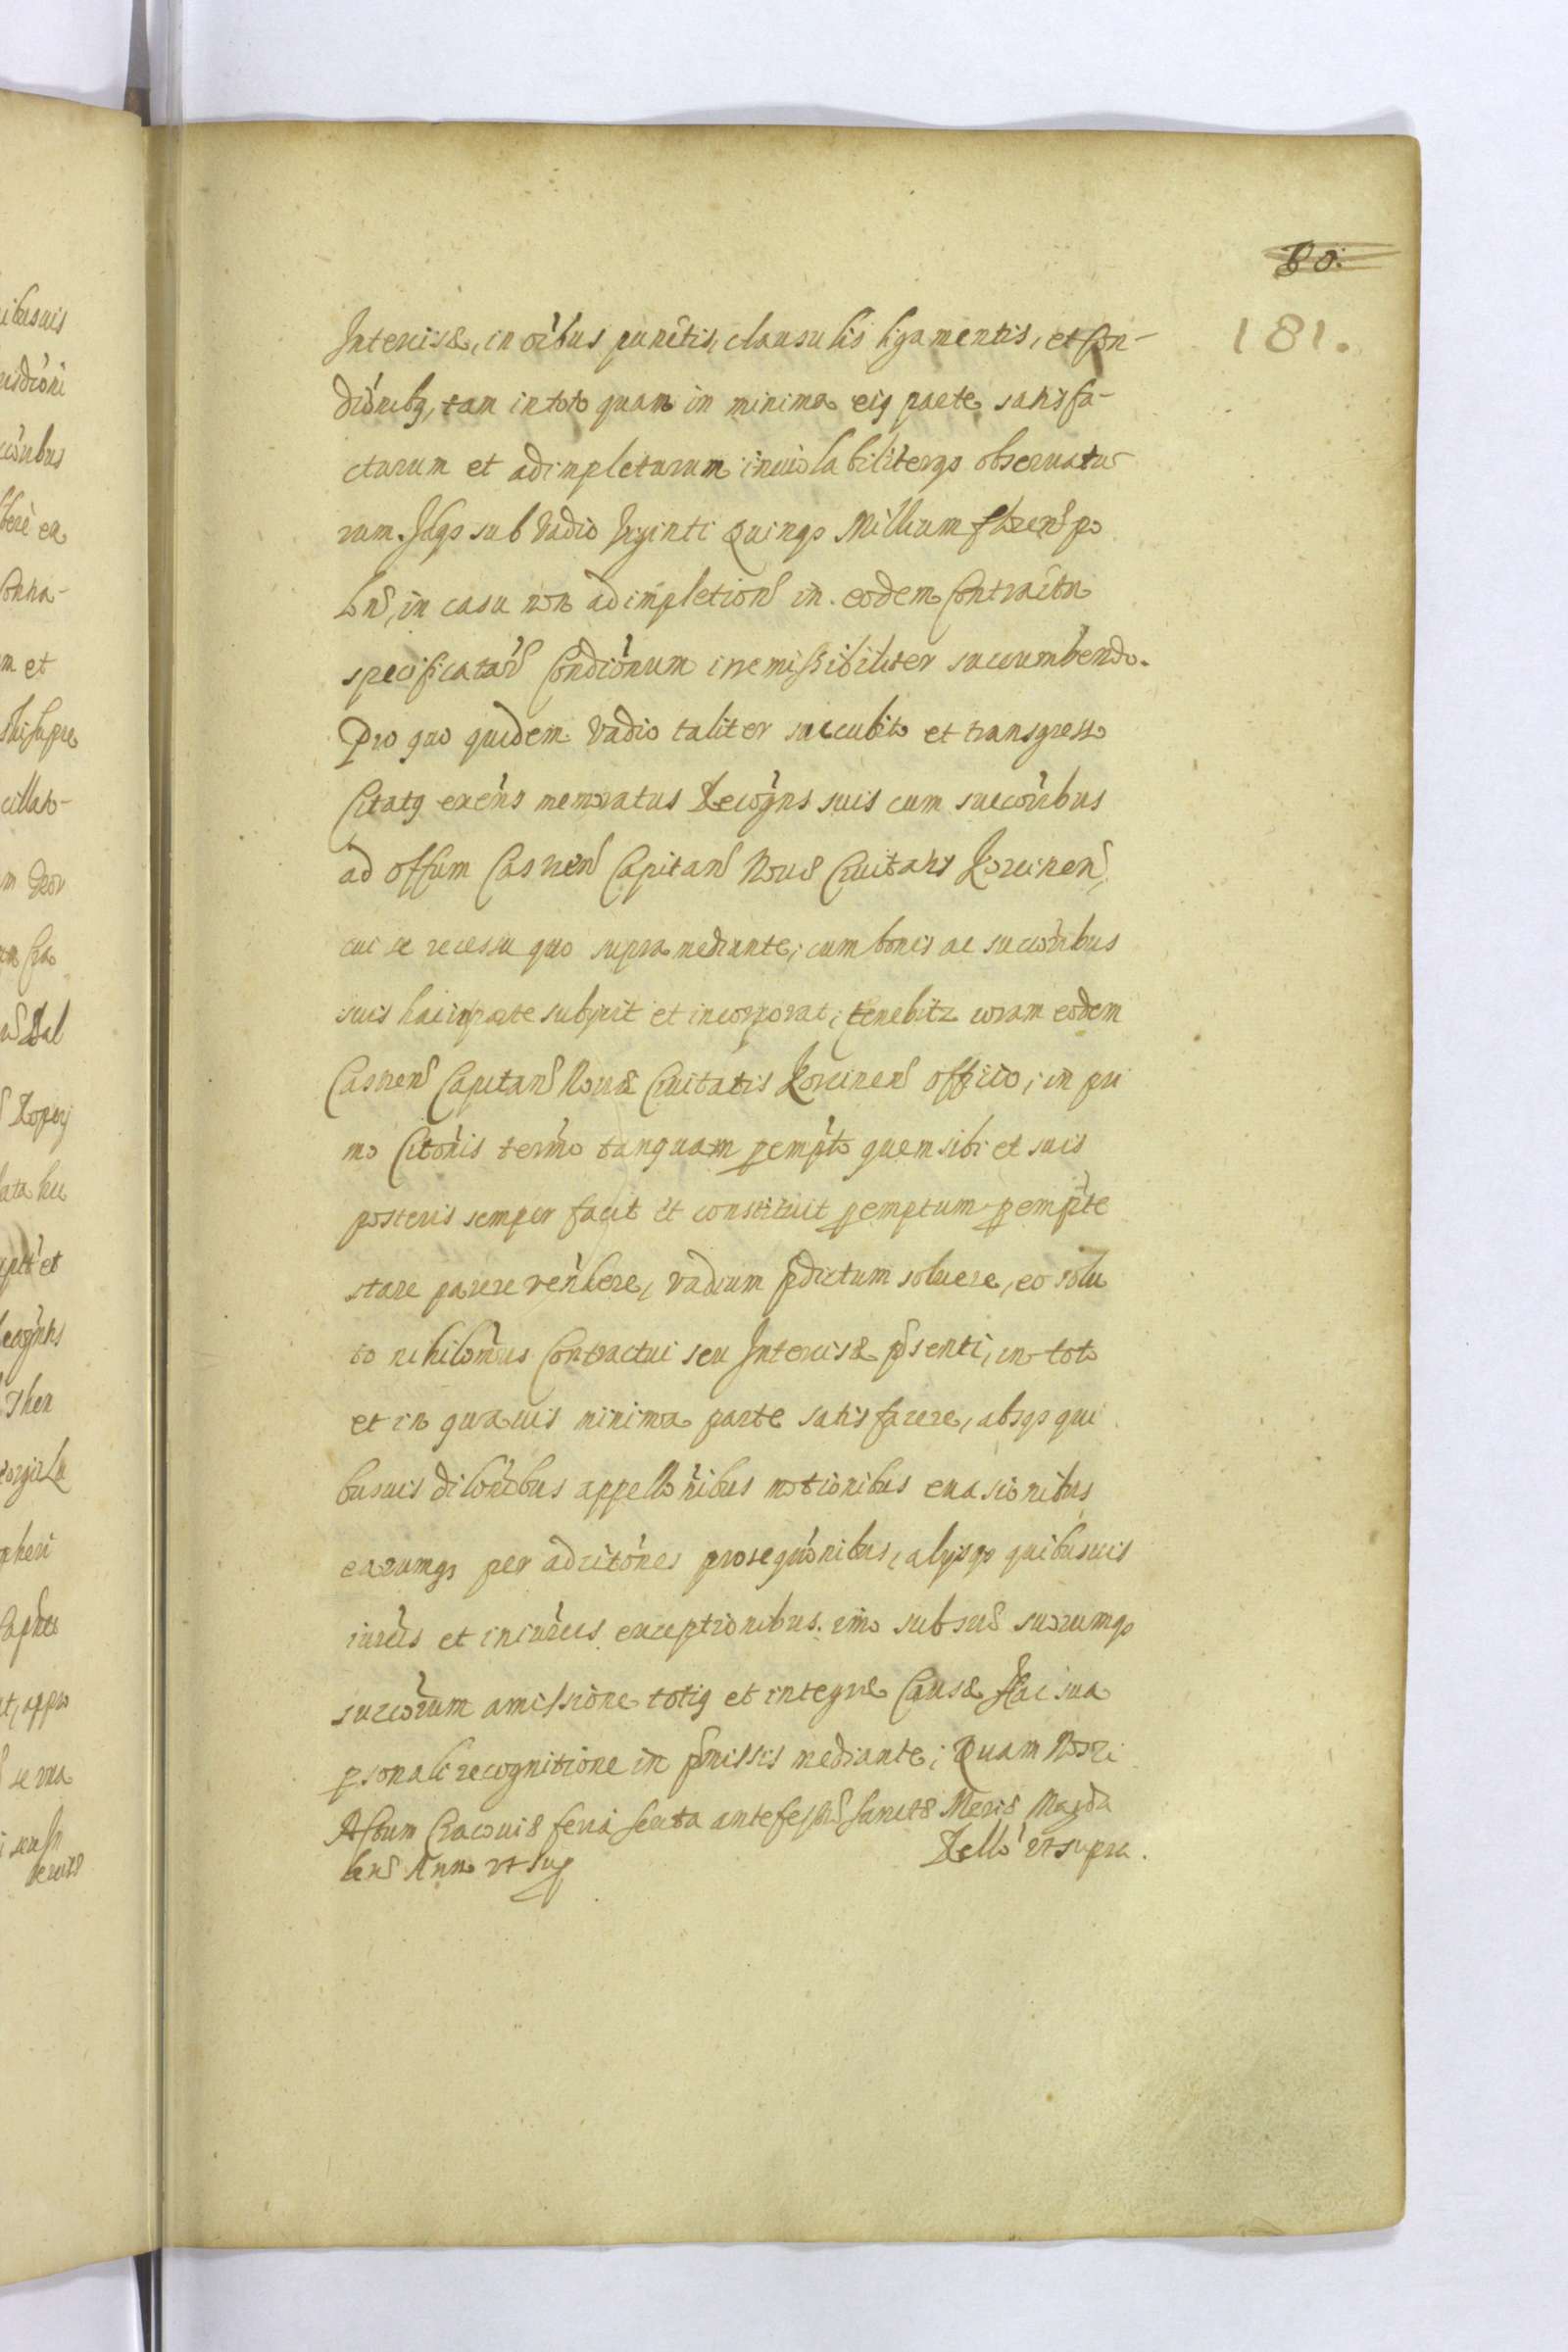 80.
181.
Intercisæ, in oibus punctis, clausulis ligamentis, et con-
dionibq, tam in toto quam in minima eiq parte satisfa-
cturum et adimpleturum inuiolabiliterqs obseruatu-
rum. Idqs sub Vadio Viginti Quinqs Millium floren po
lon, in casu non adimpletion in eodem Contractu
specificatar Condionum irremissibiliter succumbendo.
Pro quo quidem Vadio taliter succubito et transgresso
Citatq exens memoratus Recogns suis cum succoribus
ad offum Castren Capitan Nouæ Ciuitatis Korcinen,
cui se recessu quo supra mediante, cum bonis ac succoribus
suis hac in parte subijcit et incorporat, tenebitz coram eodem
Castren Capitan Nouæ Ciuitatis Korcinen officio, in pri
mo Citonis termo tanquam pempto quem sibi et suis
posteris semper facit et constituit pemptum pempte
stare parere rendere, vadium pdictum soluere, eo solu
to nihilominus Contractui seu Intercisæ psenti, in toto
et in quauis minima parte satisfacere, absqs qui
busuis dilonibus appellonibus motionibus euasionibus
earumqs per adcitones prosequonibus, alijsqs quibusuis
iureis et iniureis exceptionibus. imo sub sui suorumqs
succorum amissione totiq et integræ Causæ Hac sua
psonali recognitione in pmissis mediante, Quam Nostri
Actum Cracouiæ feria sexta ante festu Sanctæ Mariæ Magda
lenæ Anno vt sup
Rello vt supra.
ibusuis
beré ea
m et
cillato-
Ther
pheri